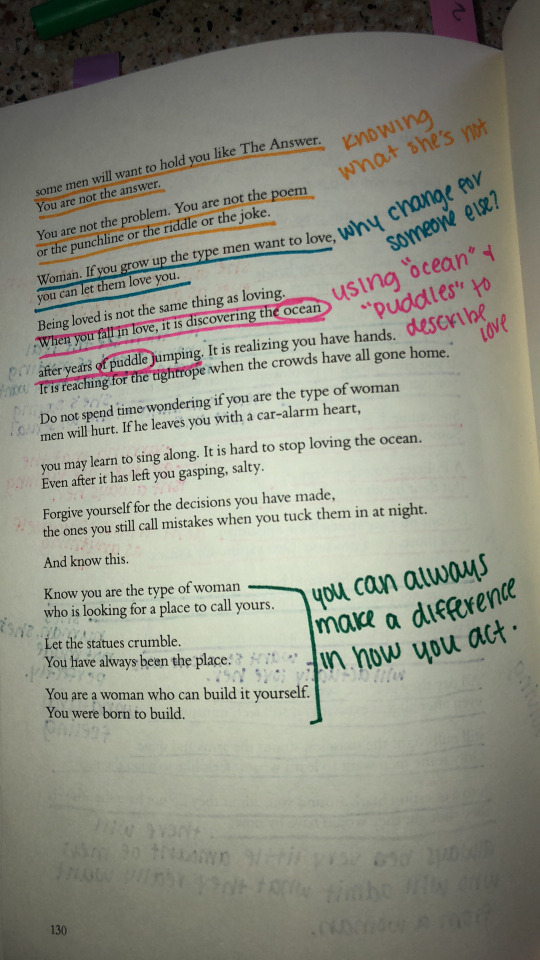 some men will want to hold you like The Answer.
You are not the answer.
Knowing
what she's not
You are not the problem. You are not the poem
or the punchline or the riddle or the joke.
Woman. If you grow up the type men want to love,
you can let them love you.
why change for
someone else?
Being loved is not the same thing as loving.
When you fall in love, it is discovering the ocean
after years of puddle jumping. It is realizing you have hands.
It is reaching for the tightrope when the crowds have all gone home.
using "ocean" &
"puddles" to
describe
love
Do not spend time wondering if you are the type of woman
men will hurt. If he leaves you with a car-alarm heart,
you may learn to sing along. It is hard to stop loving the ocean.
Even after it has left you gasping, salty.
Forgive yourself for the decisions you have made,
the ones you still call mistakes when you tuck them in at night.
And know this.
Know you are the type of woman
who is looking for a place to call yours.
Let the statues crumble.
You have always been the place.
You are a woman who can build it yourself.
You were born to build.
you can always
make a difference
in how you act.
130